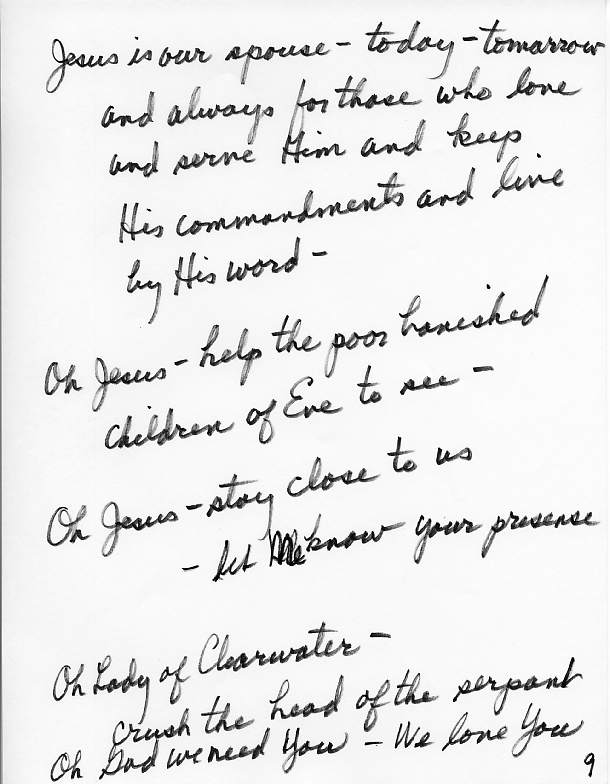 Jesus is our spouse - today - tomarrow
and always for those who love
and serve Him and keep
His commandments and live
by His word -
Oh Jesus - help the poor banished
children of Eve to see -
Oh Jesus - stay close to us
- let Me know your presense
Oh Lady of Clearwater -
crush the head of the serpant
Oh God we need You - We love You
9